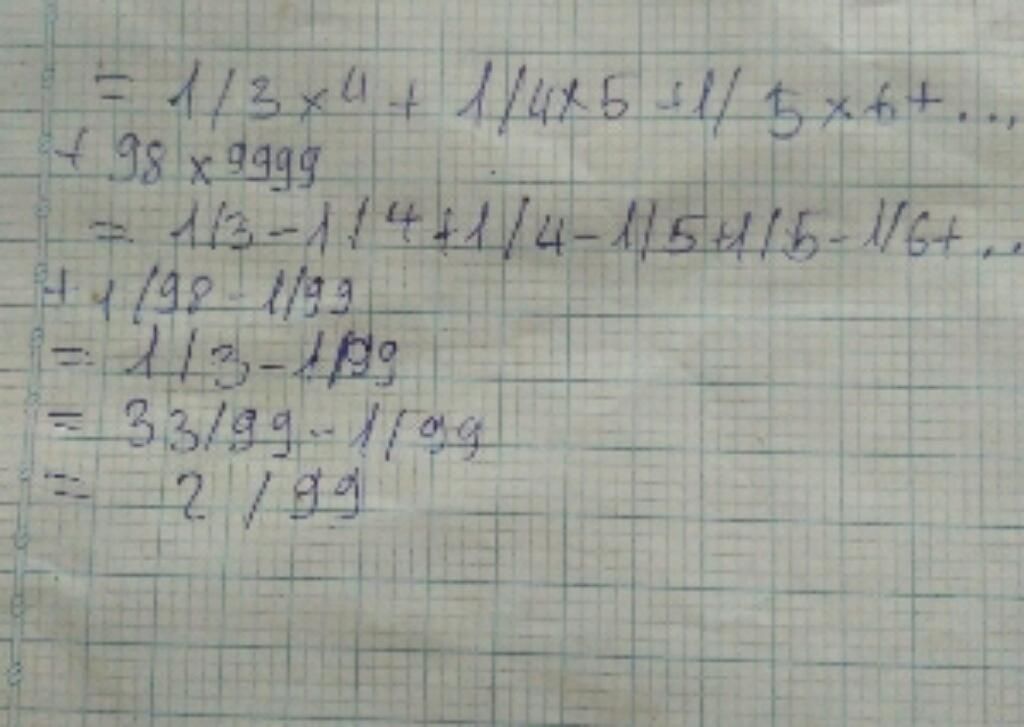 = 1/3 x 4 + 1/4x5 +1/ 5 x 6+...
+ 98 x 9999
= 1/3-1/4+1/4-1/5+1/5-1/6+...
+ 1/98-1/99
= 1/3-1/99
= 33/99-1/99
= 2/99